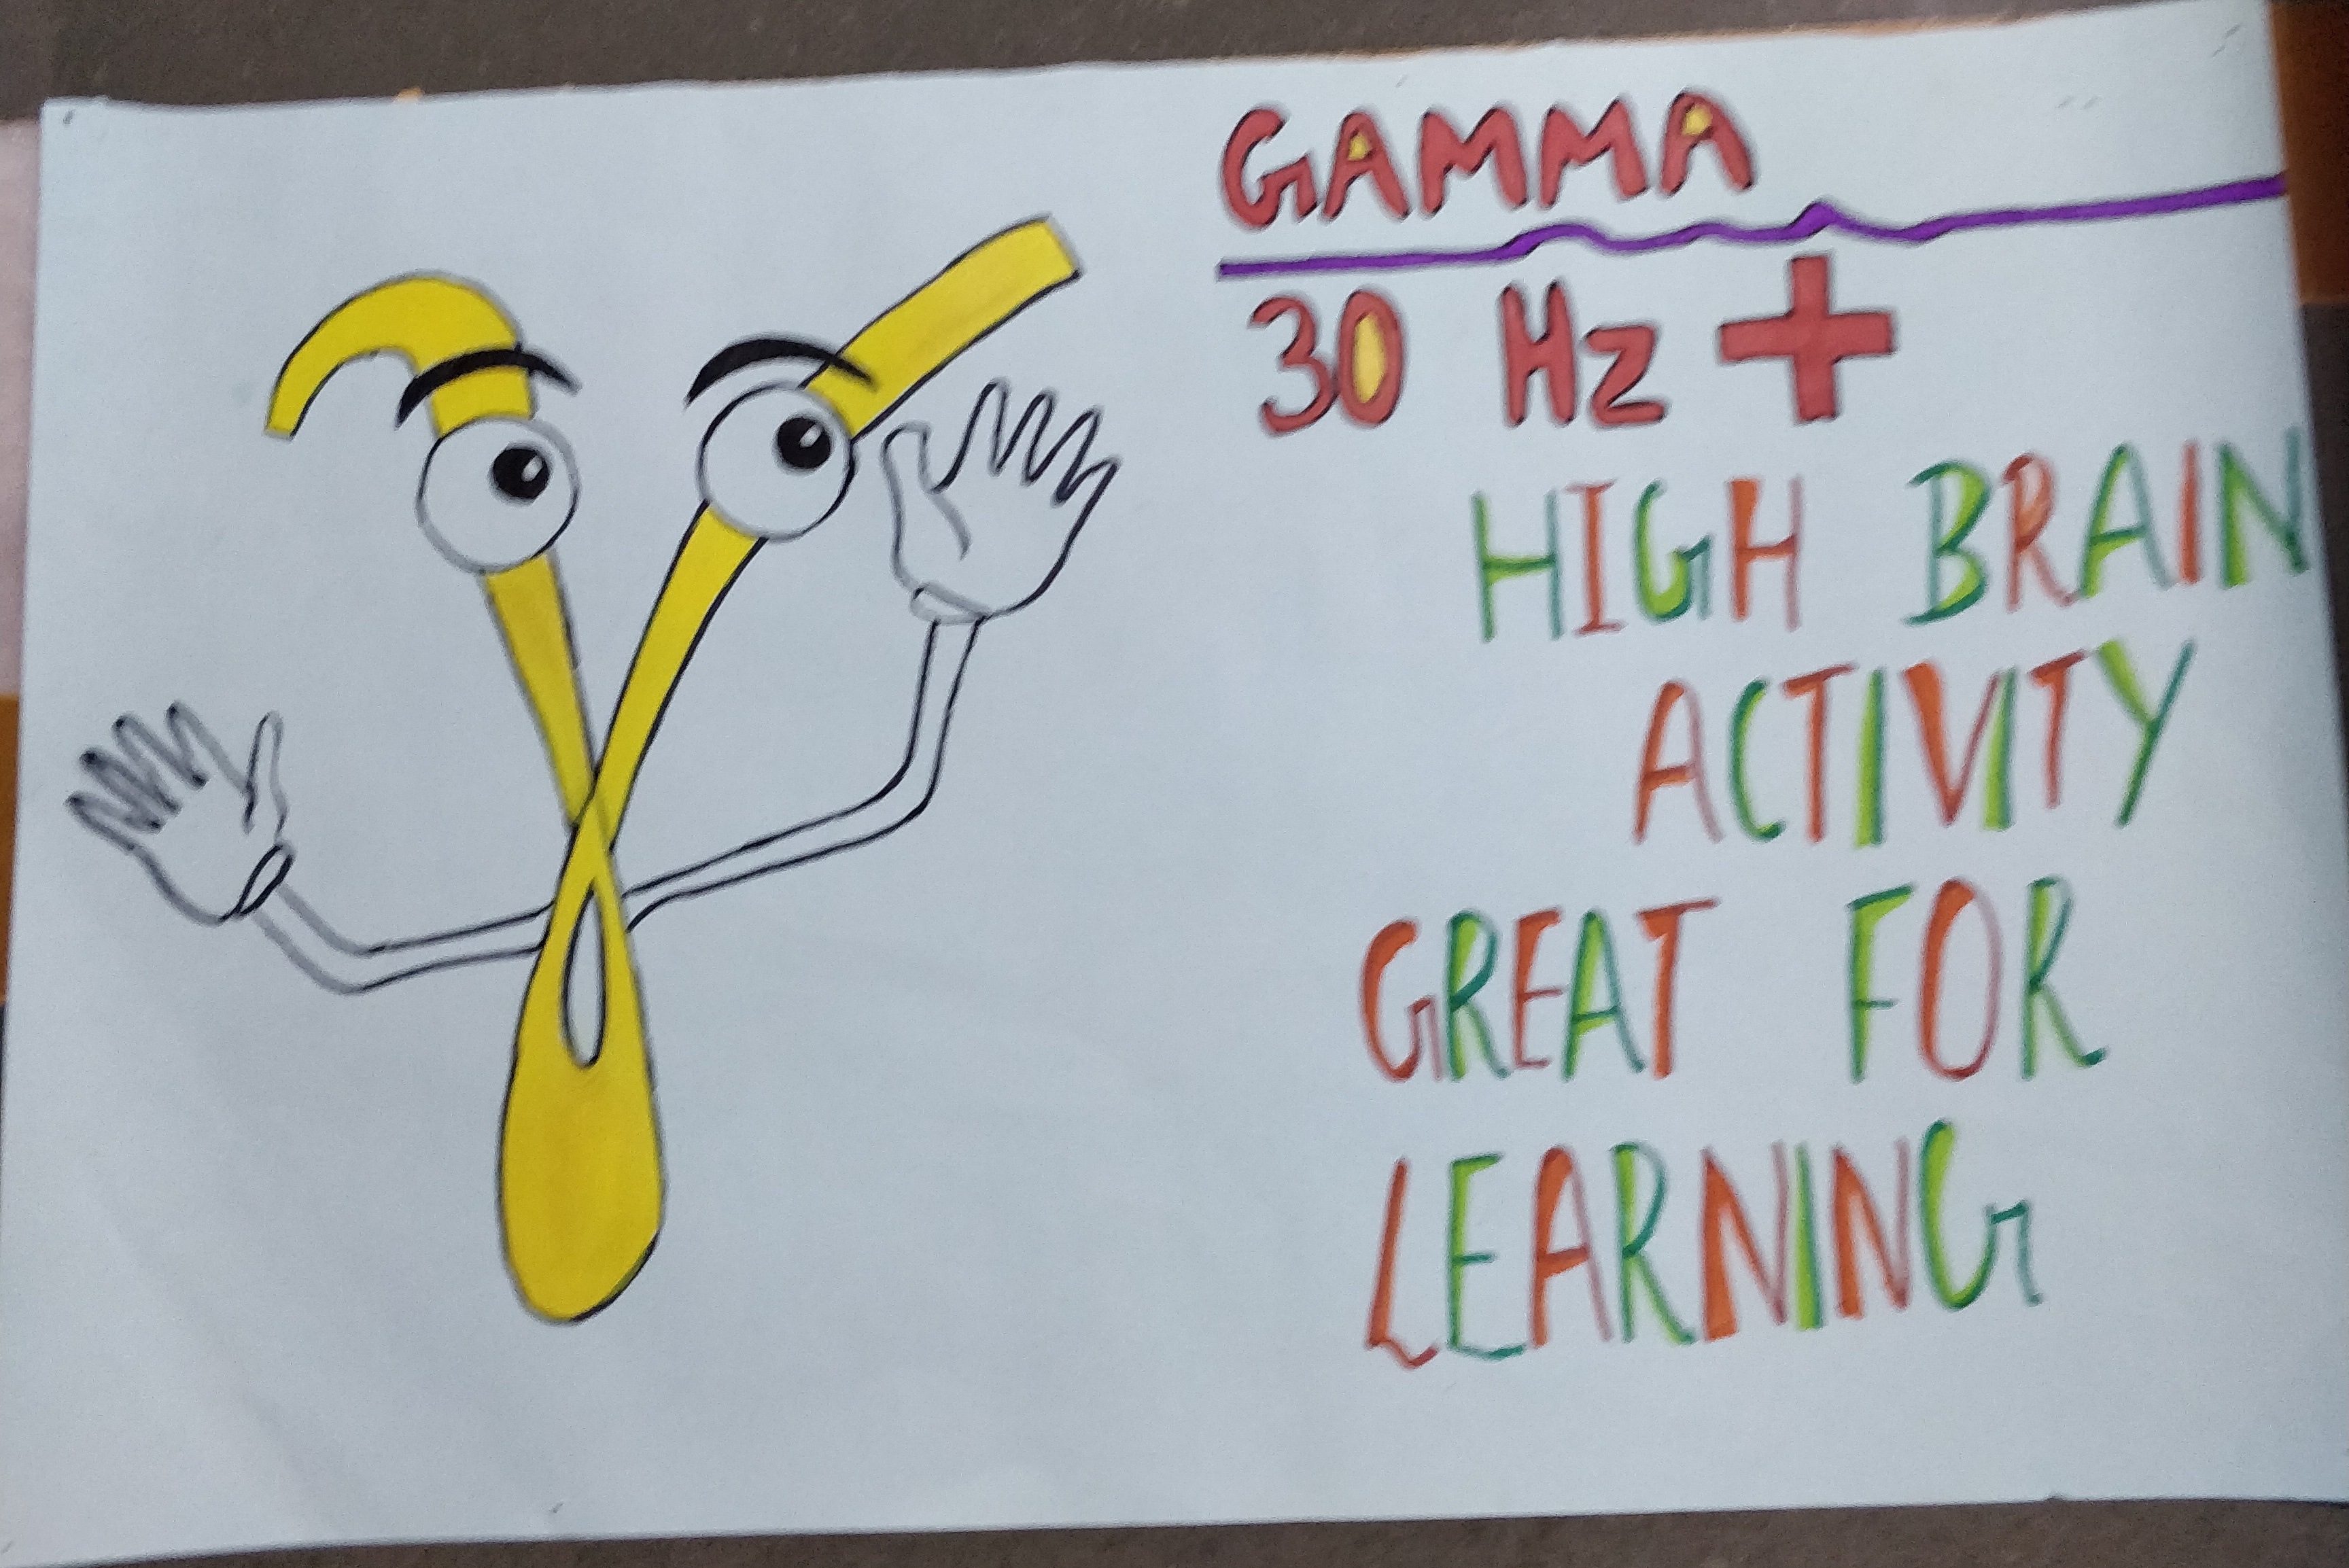 GAMMA
30 Hz +
HIGH BRAIN
ACTIVITY
GREAT FOR
LEARNING